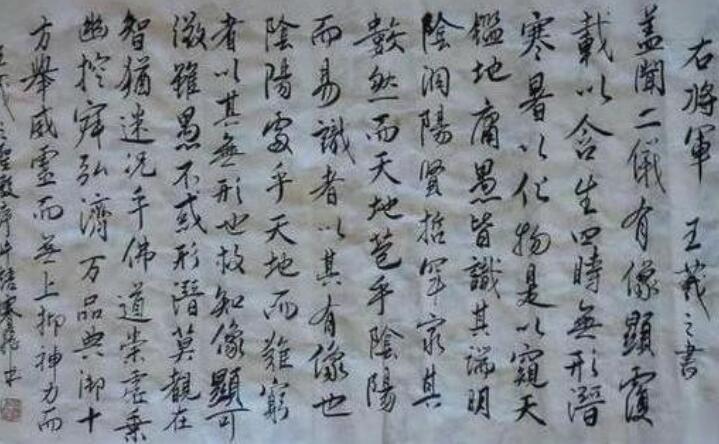 右將軍 王羲之書
蓋聞二儀有像顯覆
載以含生四時無形潛
寒暑以化物是以窺天
鑑地庸愚皆識其端明
陰洞陽賢哲罕窮其
數然而天地苞乎陰陽
而易識者以其有像也
陰陽處乎天地而難窮
者以其無形也故知像顯可
徵雖愚不惑形潛莫覩在
智猶迷況乎佛道崇虛乘
幽控寂弘濟万品典御十
方舉威靈而無上抑神力而
王羲之聖教序